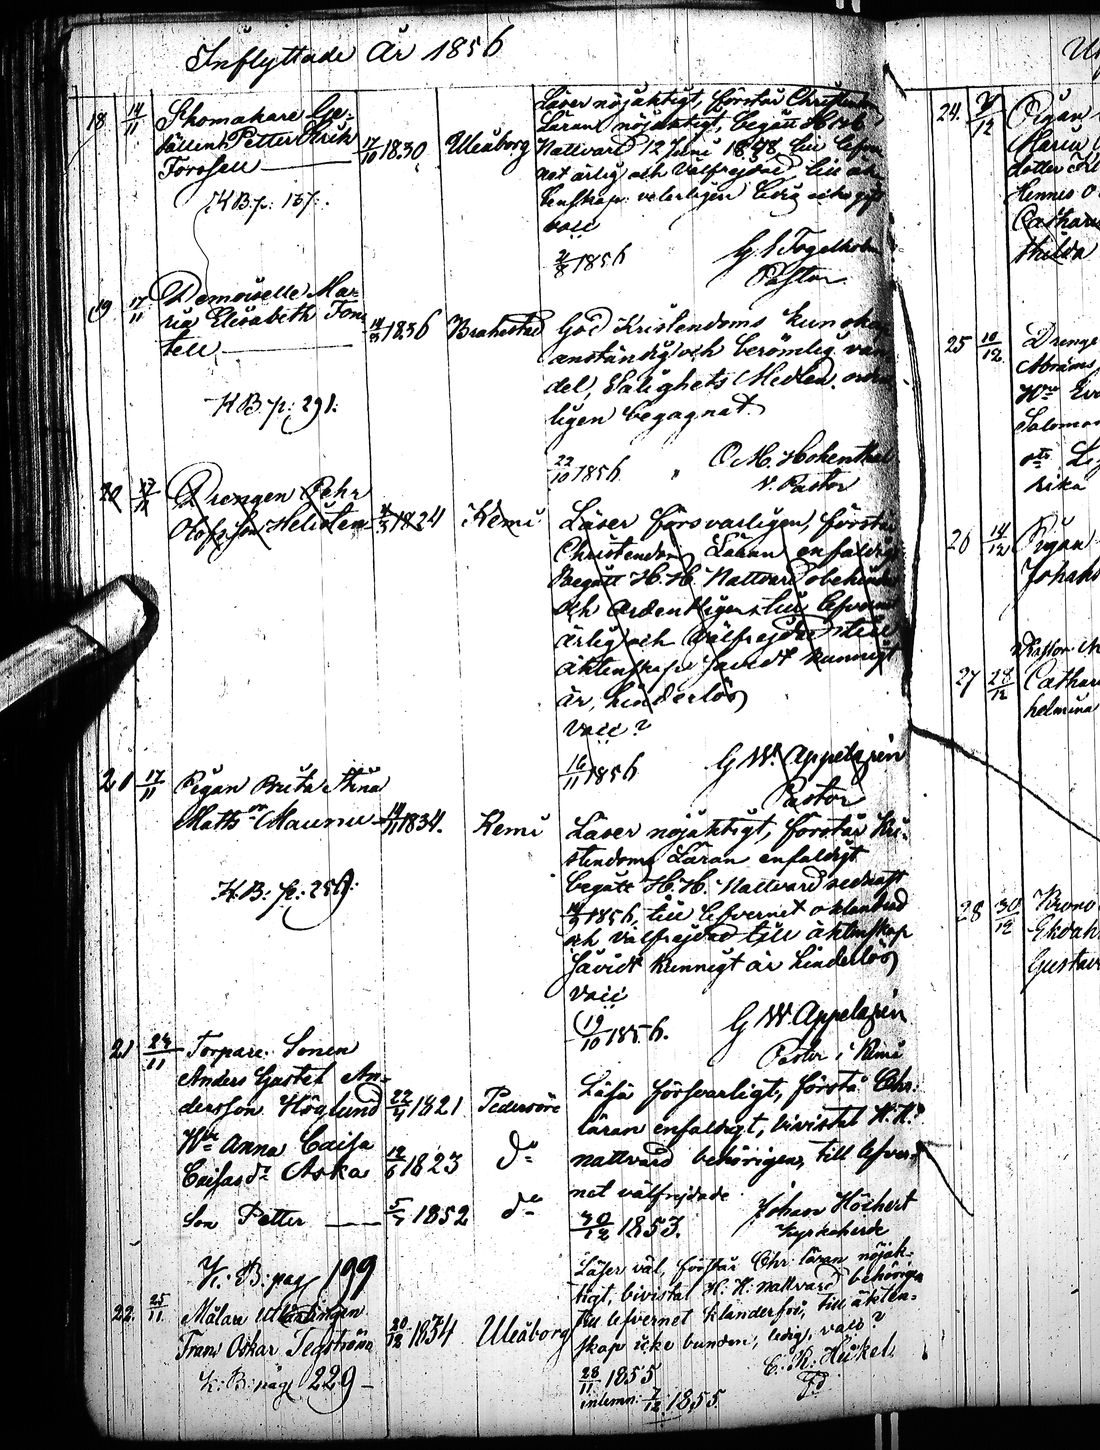 Inflyttade År 1856
18 14/11 Skomakare Ge-
sällen Petter Erik
Forssell 17/10 1830 Uleåborg
K.B. p: 157:.
Läser nöjaktigt, förstår Christendoms
Läran nöjaktigt, begått H. H.
Nattvard 12 Juni 1848, till lefver-
net ärlig och välfrejdad, till äk-
tenskap veterligen ledig och ogift
vale
2/8 1856 G. Fogelholm
Pastor
19 17/11 Demoiselle Ma-
ria Elisabeth Fon-
tell 14/3 1836 Brahestad
K.B. p: 291:
God Kristendoms kunskap
anständig och berömlig van-
del, Salighets Medlen orden-
ligen begagnat.
22/10 1856 C. M. Hohenthal
V. Pastor
20 Drengen Pehr
Olofsson Helisten 1824 Kemi
Läser försvarligen, förstår
Christendoms Läran enfaldigt
Begått H. H. Nattvard obehindrad
och ordentligen till lefverne
ärlig och välfrejdad till
äktenskap såvidt kunnigt
är, hinderlös
vale?
16/11 1856 G W. Appelgren
Pastor
21 17/11 Pigan Brita Stina
Matts dr Maunu 14/11 1834. Kemi
K.B: p: 259:
Läser nöjaktigt, förstår Kri-
stendoms Läran enfaldigt
begått H. H. Nattvard sednast
1856, till lefvernet oklandrad
och välfrejdad till äktenskap
såvidt kunnigt är hinderlös
vale
19/10 1856. G W. Appelgren
Pastor i Kemi
21 24/11 Torpare Sonen
Anders Gustaf An-
dersson Höglund 22/4 1821 Pedersöre
Hu Anna Caisa
Caisas dr Aska 1823 do
Son Petter 5/7 1852 do
K: B: pag 199
Läsa försvarligt, förstå Chr:
läran enfaldigt, bivistat H. H:
nattvard behörigen, till lefver-
net välfrejdade
30/12 1853. Johan Höckert
Kyrkoherde
22. 25/11 Målare Utlärlingen
Frans Oskar Segström 20/12 1834 Uleåborg
K: B: pag 229
Läser väl, förstår Chr läran nöjak-
tigt, bivistat H. H: nattvard behörigen
till lefvernet klanderfri, till äkten-
skap icke bunden, ledig, vale?
28/11 1855 C. R. Heikel
inlemn: 7/12 1855
24. 12 Pigan
Maria
dotter
Hennes
Catharina
Hilda
25 10/12 Drenge
Abrams
Hu
Salomon
rika
26 14/12 Pigan
Johan
27 28/12 Cathar
helmina
28 30/12 Krono
Ekdah
Gustav